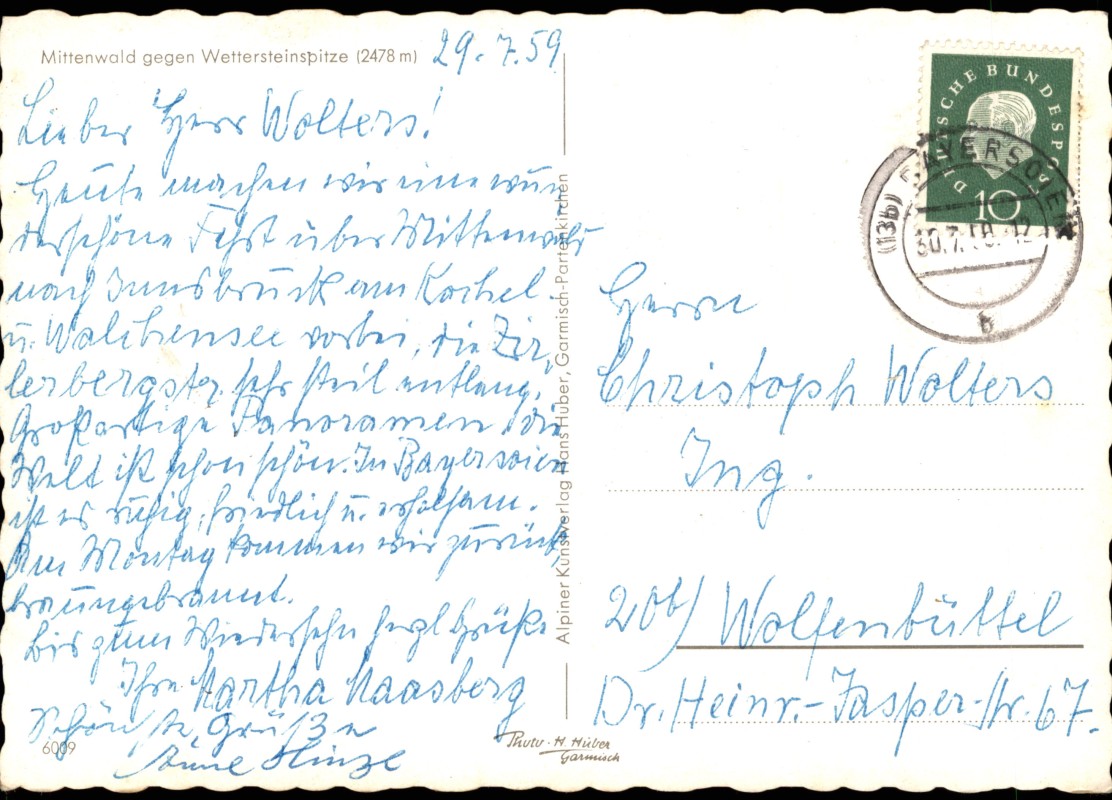 Mittenwald gegen Wettersteinspitze (2478 m)
29.7.59
Lieber Herr Wolters!
Heute machen wir eine wun-
derschöne Fahrt über Mittenwald
nach Innsbruck am Kochel-
u. Walchensee vorbei, die Zir-
lerbergstr. sehr steil entlang.
Großartige Panoramen, die
Welt ist schon schön. In Bayersoien
ist es ruhig, friedlich u. erholsam.
Am Montag kommen wir zurück,
braungebrannt.
Bis zum Wiedersehn herzl. Grüße
Ihre Martha Maasberg
Schönste Grüße
Änne Hinze
6009
Alpiner Kunstverlag Hans Huber, Garmisch-Partenkirchen
Photo-H. Huber
Garmisch
DEUTSCHE BUNDESPOST
10
(13b) BAYERSOIEN
30.7.
b
Herrn
Christoph Wolters
Ing.
20b) Wolfenbüttel
Dr. Heinr.-Jasper-Str. 67.